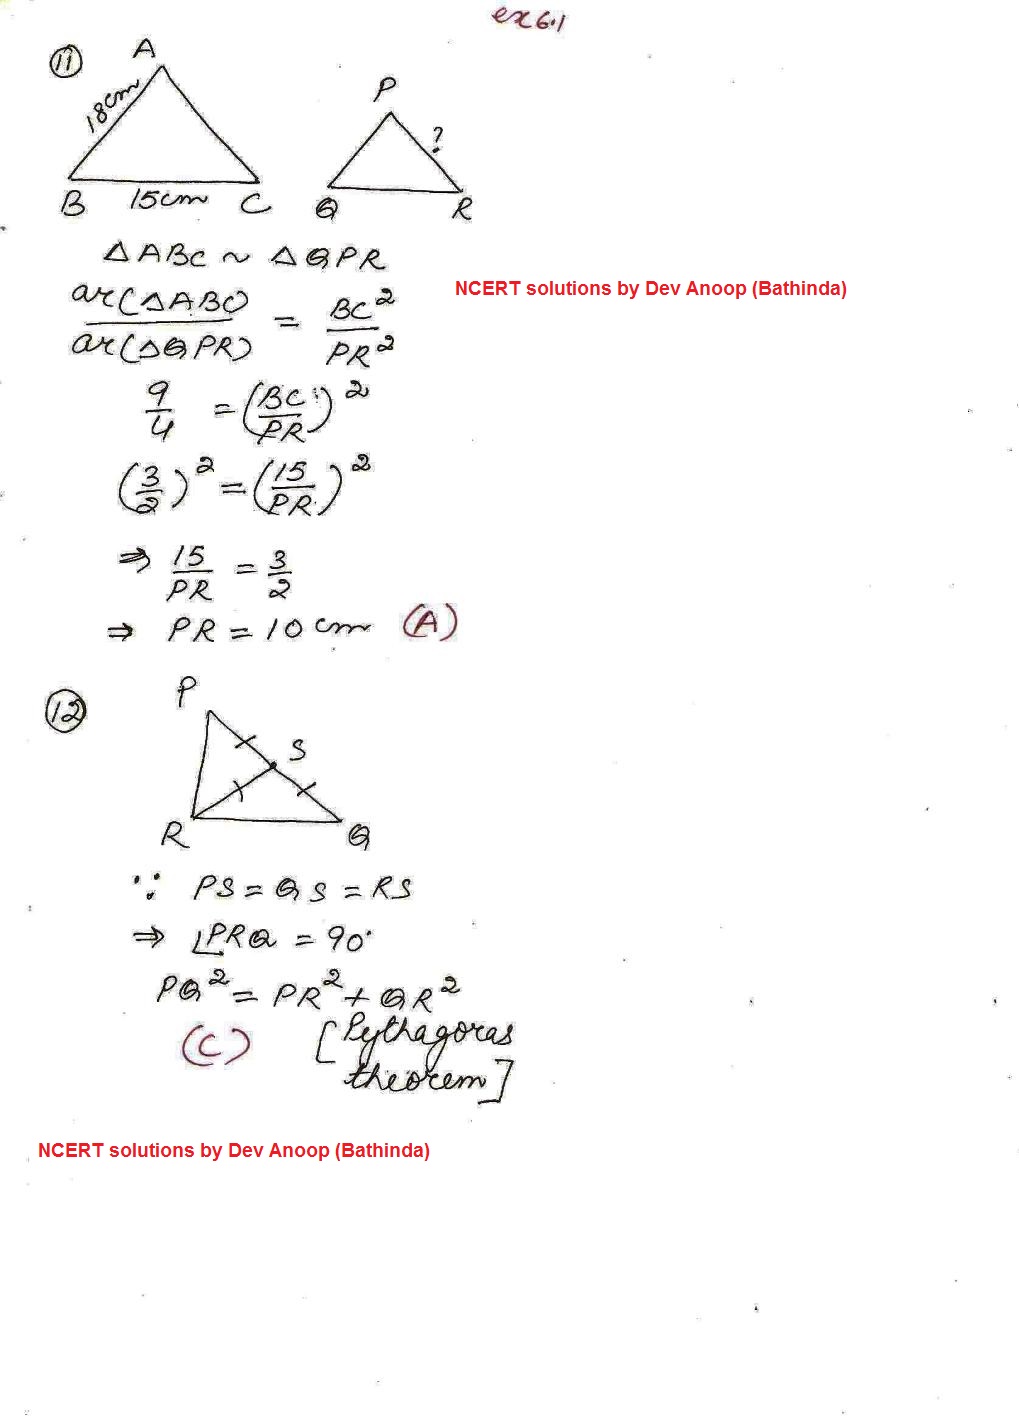 ex 6.1
11
A
18cm
B 15cm C
P
?
Q R
△ABC ~ △QPR
ar(△ABC) / ar(△QPR) = BC² / PR²
NCERT solutions by Dev Anoop (Bathinda)
9/4 = (BC/PR)²
(3/2)² = (15/PR)²
⇒ 15/PR = 3/2
⇒ PR = 10 cm (A)
12
P
S
R Q
∵ PS = QS = RS
⇒ ∠PRQ = 90°
PQ² = PR² + QR²
(C) [Pythagoras
theorem]
NCERT solutions by Dev Anoop (Bathinda)